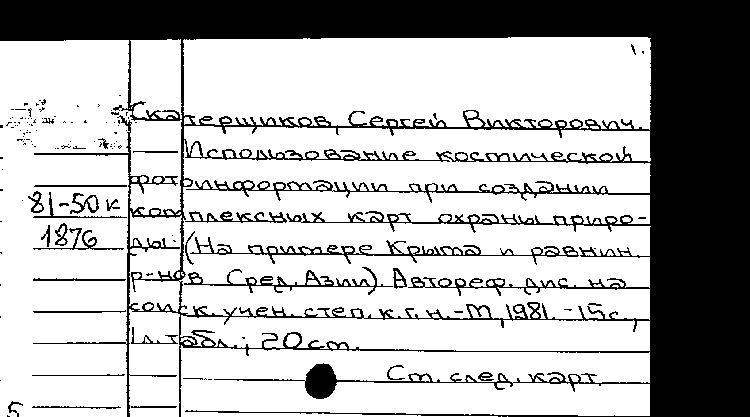 1.
Скатерщиков, Сергей Викторович.
Использование космической
фотоинформации при создании
81-50к комплексных карт охраны приро-
1876 ды: (На примере Крыма и равнин.
р-нов Сред. Азии). Автореф. дис. на
соиск. учен. степ. к.г.н. -М, 1981. -15с.,
1л. табл.; 20см.
См. след. карт.
5